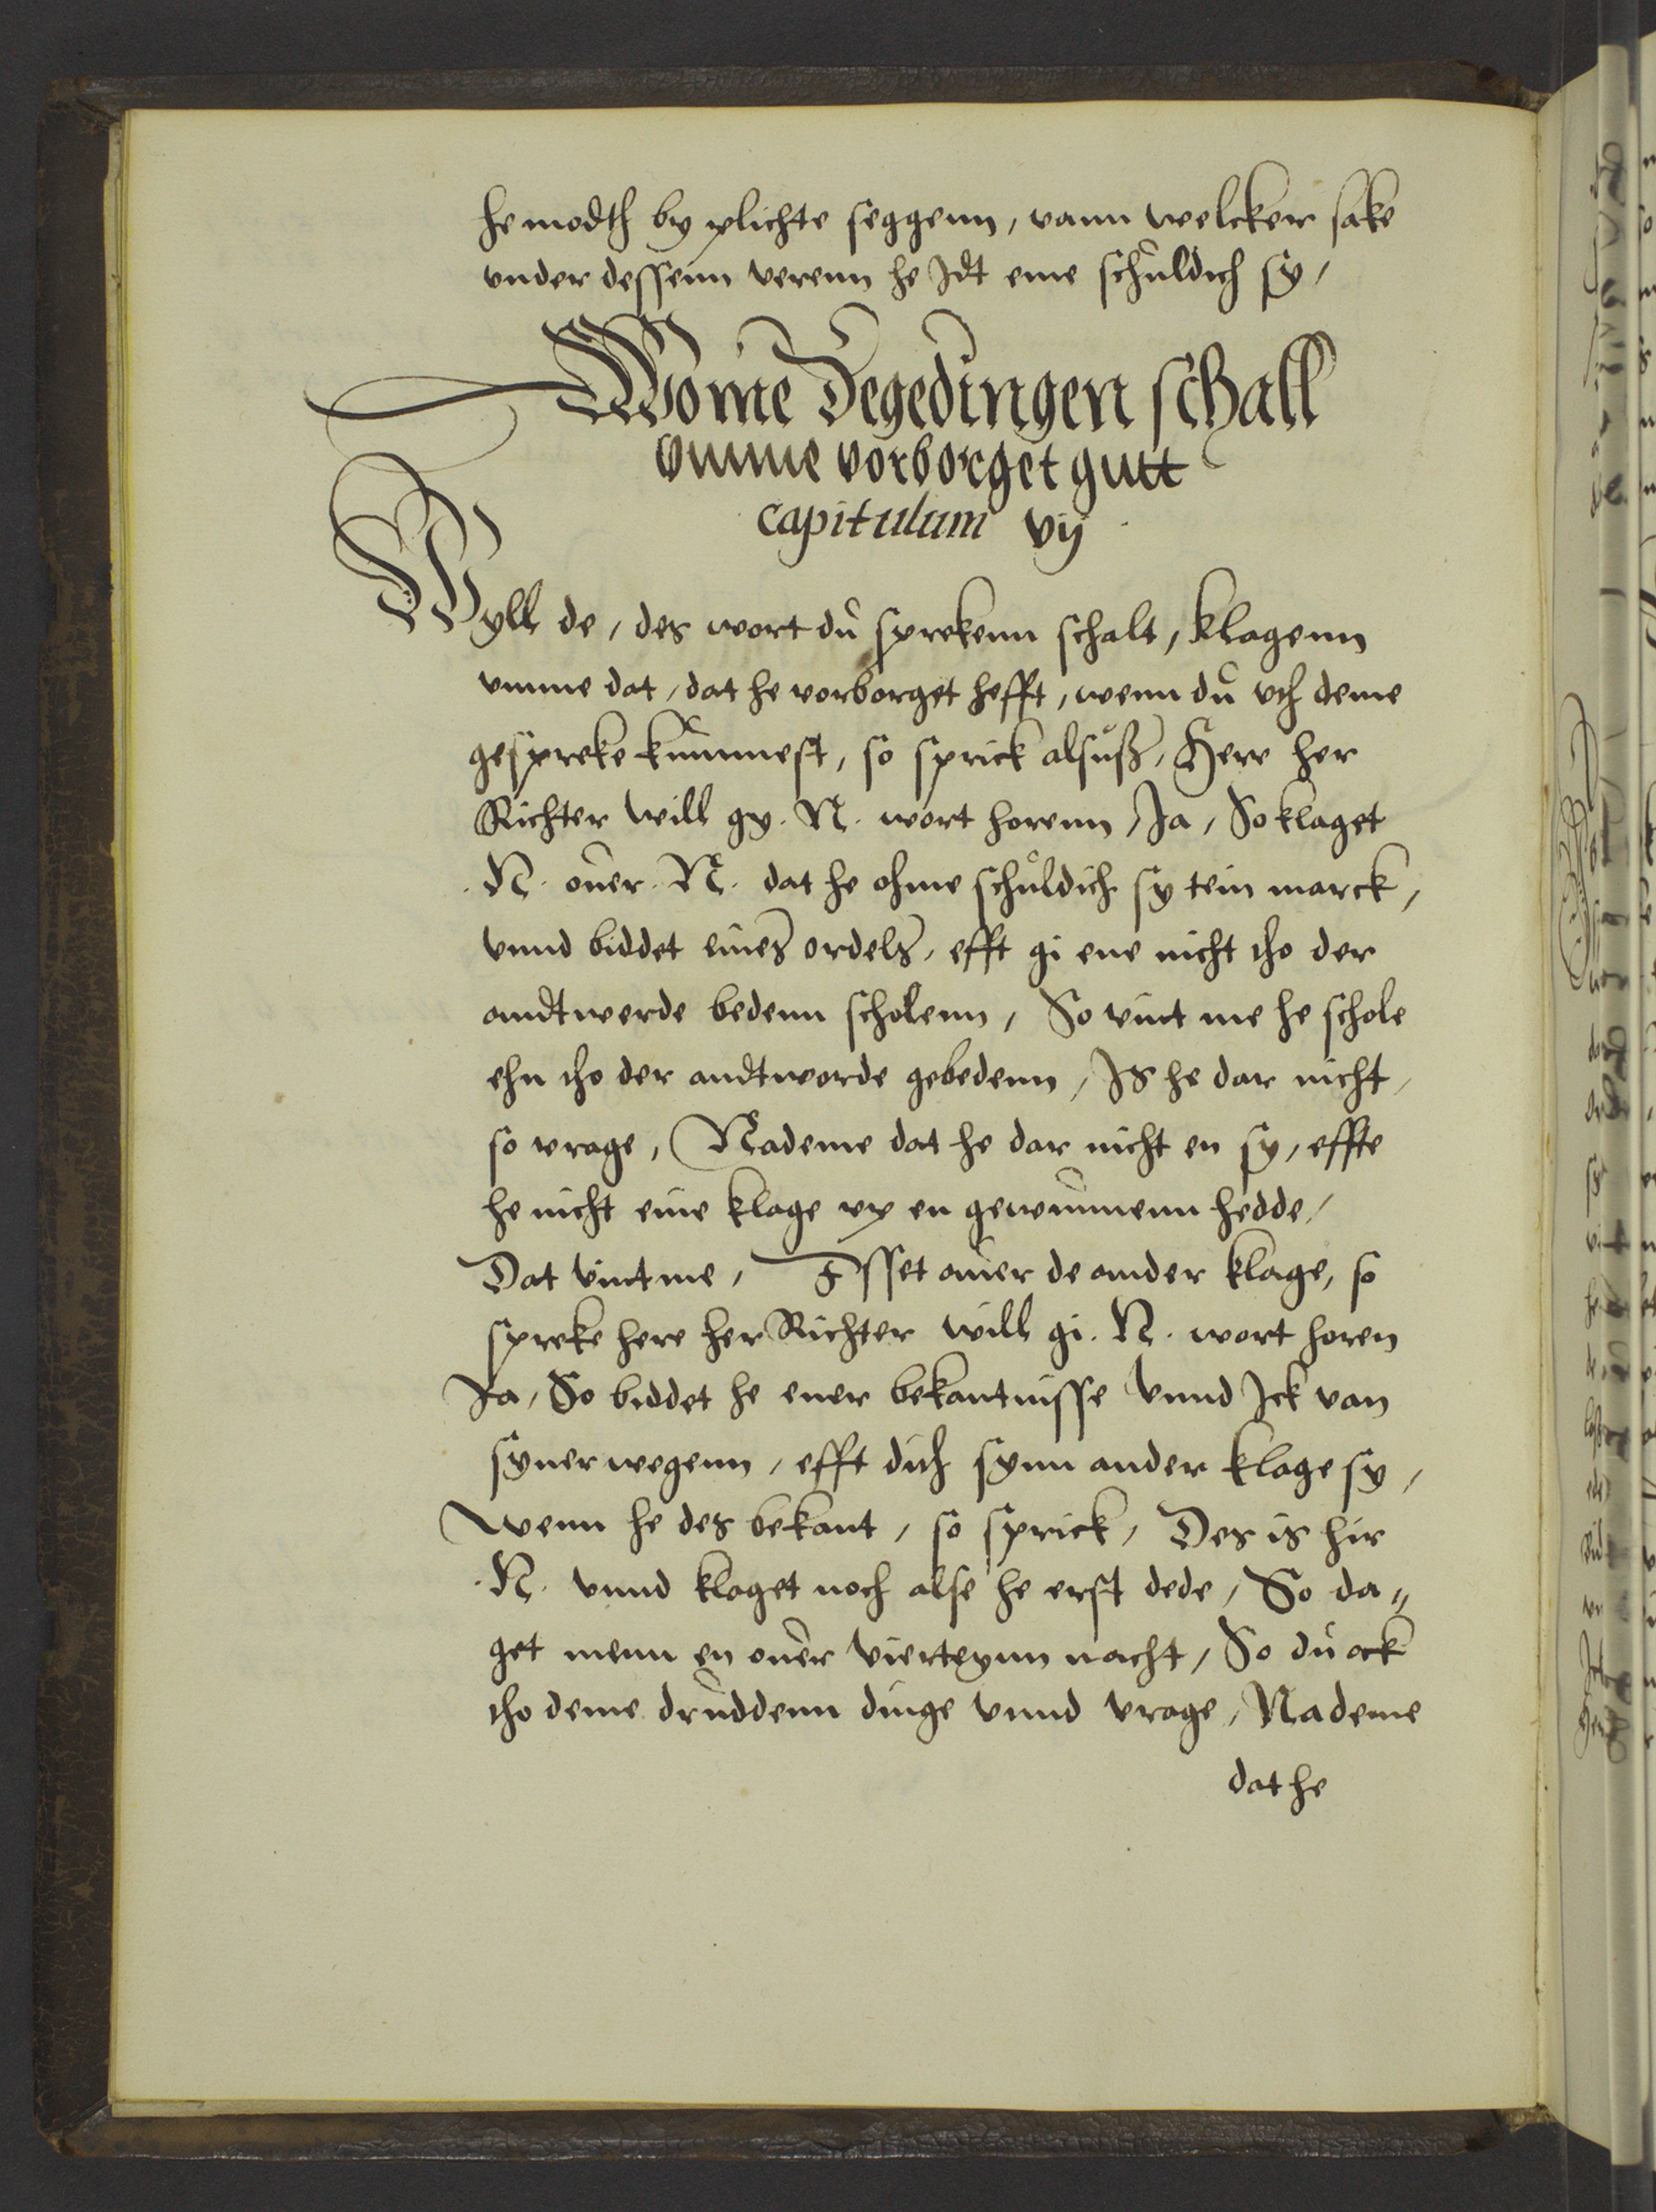 he modth by plichte seggenn, vann welcker sake
vnder dessenn verenn he Idt eme schuldich sy,
Wo me Degedingen schall
vmme vorborget gutt
capitulum vij
Wyll de, des wort du sprekenn schalt, klagenn
vmme dat, dat he vorborget hefft, wenn du vth deme
gespreke kummest, so sprick alsuß, Here her
Richter will gy. N. wort horenn, Ja, So klaget
.N. ouer. N. dat he ohme schuldich sy tein marck,
vnnd biddet eines ordels, efft gi ene nicht tho der
andtwerde bedenn scholenn, So vint me he schole
ehn tho der andtworde gebedenn, Is he dar nicht,
so vrage, Nademe dat he dar nicht en sy, effte
he nicht eine klage vp en gewunnenn hedde,
Dat vint me, Isset ouer de ander klage, so
spreke here her Richter will gi. N. wort horen
Ja, So biddet he ener bekantnisse vnnd Ick van
syner wegenn, efft dith synn ander klage sy,
Wenn he des bekant, so sprick, Des is hir
.N. vnnd klaget noch alse he erst dede, So da⸗
get menn en ouer vierteynn nacht, So du ock
tho deme druddenn dinge vnnd vrage, Nademe
dat he